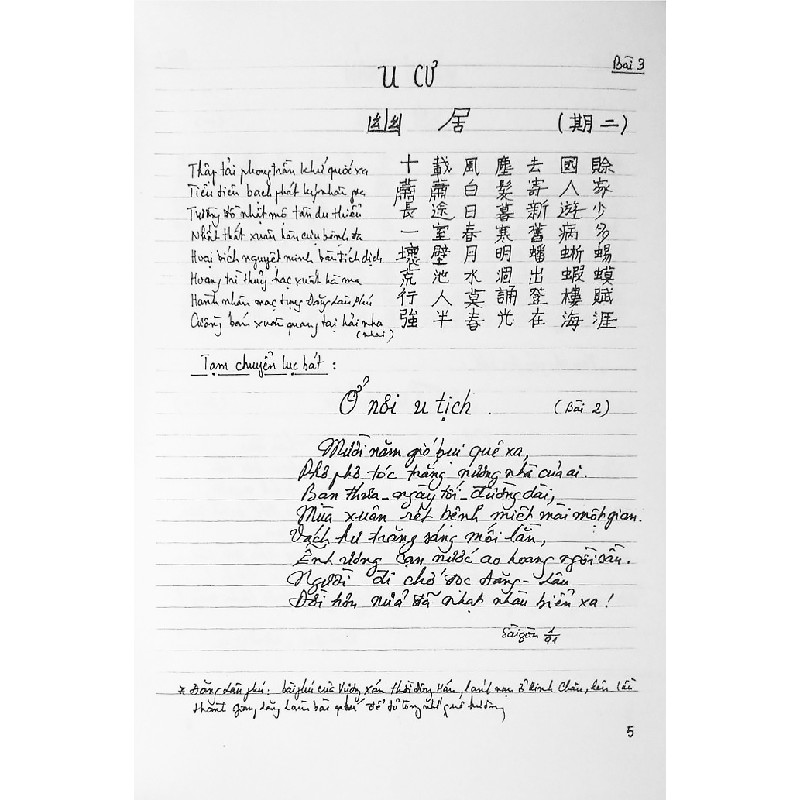 Bài 3
U CƯ
幽居 (期二)
Thập tải phong trần khứ quốc xa 十載風塵去國賒
Tiêu tiêu bạch phát ký nhân gia 蕭蕭白髮寄人家
Trường đồ nhật mộ tân du thiểu 長途日暮新遊少
Nhất thất xuân hàn cựu bệnh đa 一室春寒舊病多
Hoại bích nguyệt minh bàn tích dịch 壞壁月明蟠蜥蜴
Hoang trì thủy hạc xuất hà ma 荒池水涸出蝦蟆
Hành nhân mạc tụng Đăng lâu phú 行人莫誦登樓賦
Cưỡng bán xuân quang tại hải nha 強半春光在海涯
(nhai)
Tạm chuyển lục bát:
Ở nơi u tịch (Bài 2)
Mười năm gió bụi quê xa,
Phơ phơ tóc trắng nương nhà của ai.
Bạn thưa - ngày tối - đường dài,
Mùa xuân rét bệnh miết mài một gian.
Vách hư trăng sáng mối lằn,
Ễnh ương cạn nước ao hoang ngồi dần.
Người đi chớ đọc Đăng-lâu
Đời hơn nửa đã nhạt nhàu biển xa!
Sàigòn
* Đăng lâu phú: bài phú của Vương xán thời đông Hán, lánh nạn ở Kinh Châu, lên lầu
thành làm bài phú để tỏ lòng nhớ quê hương
5